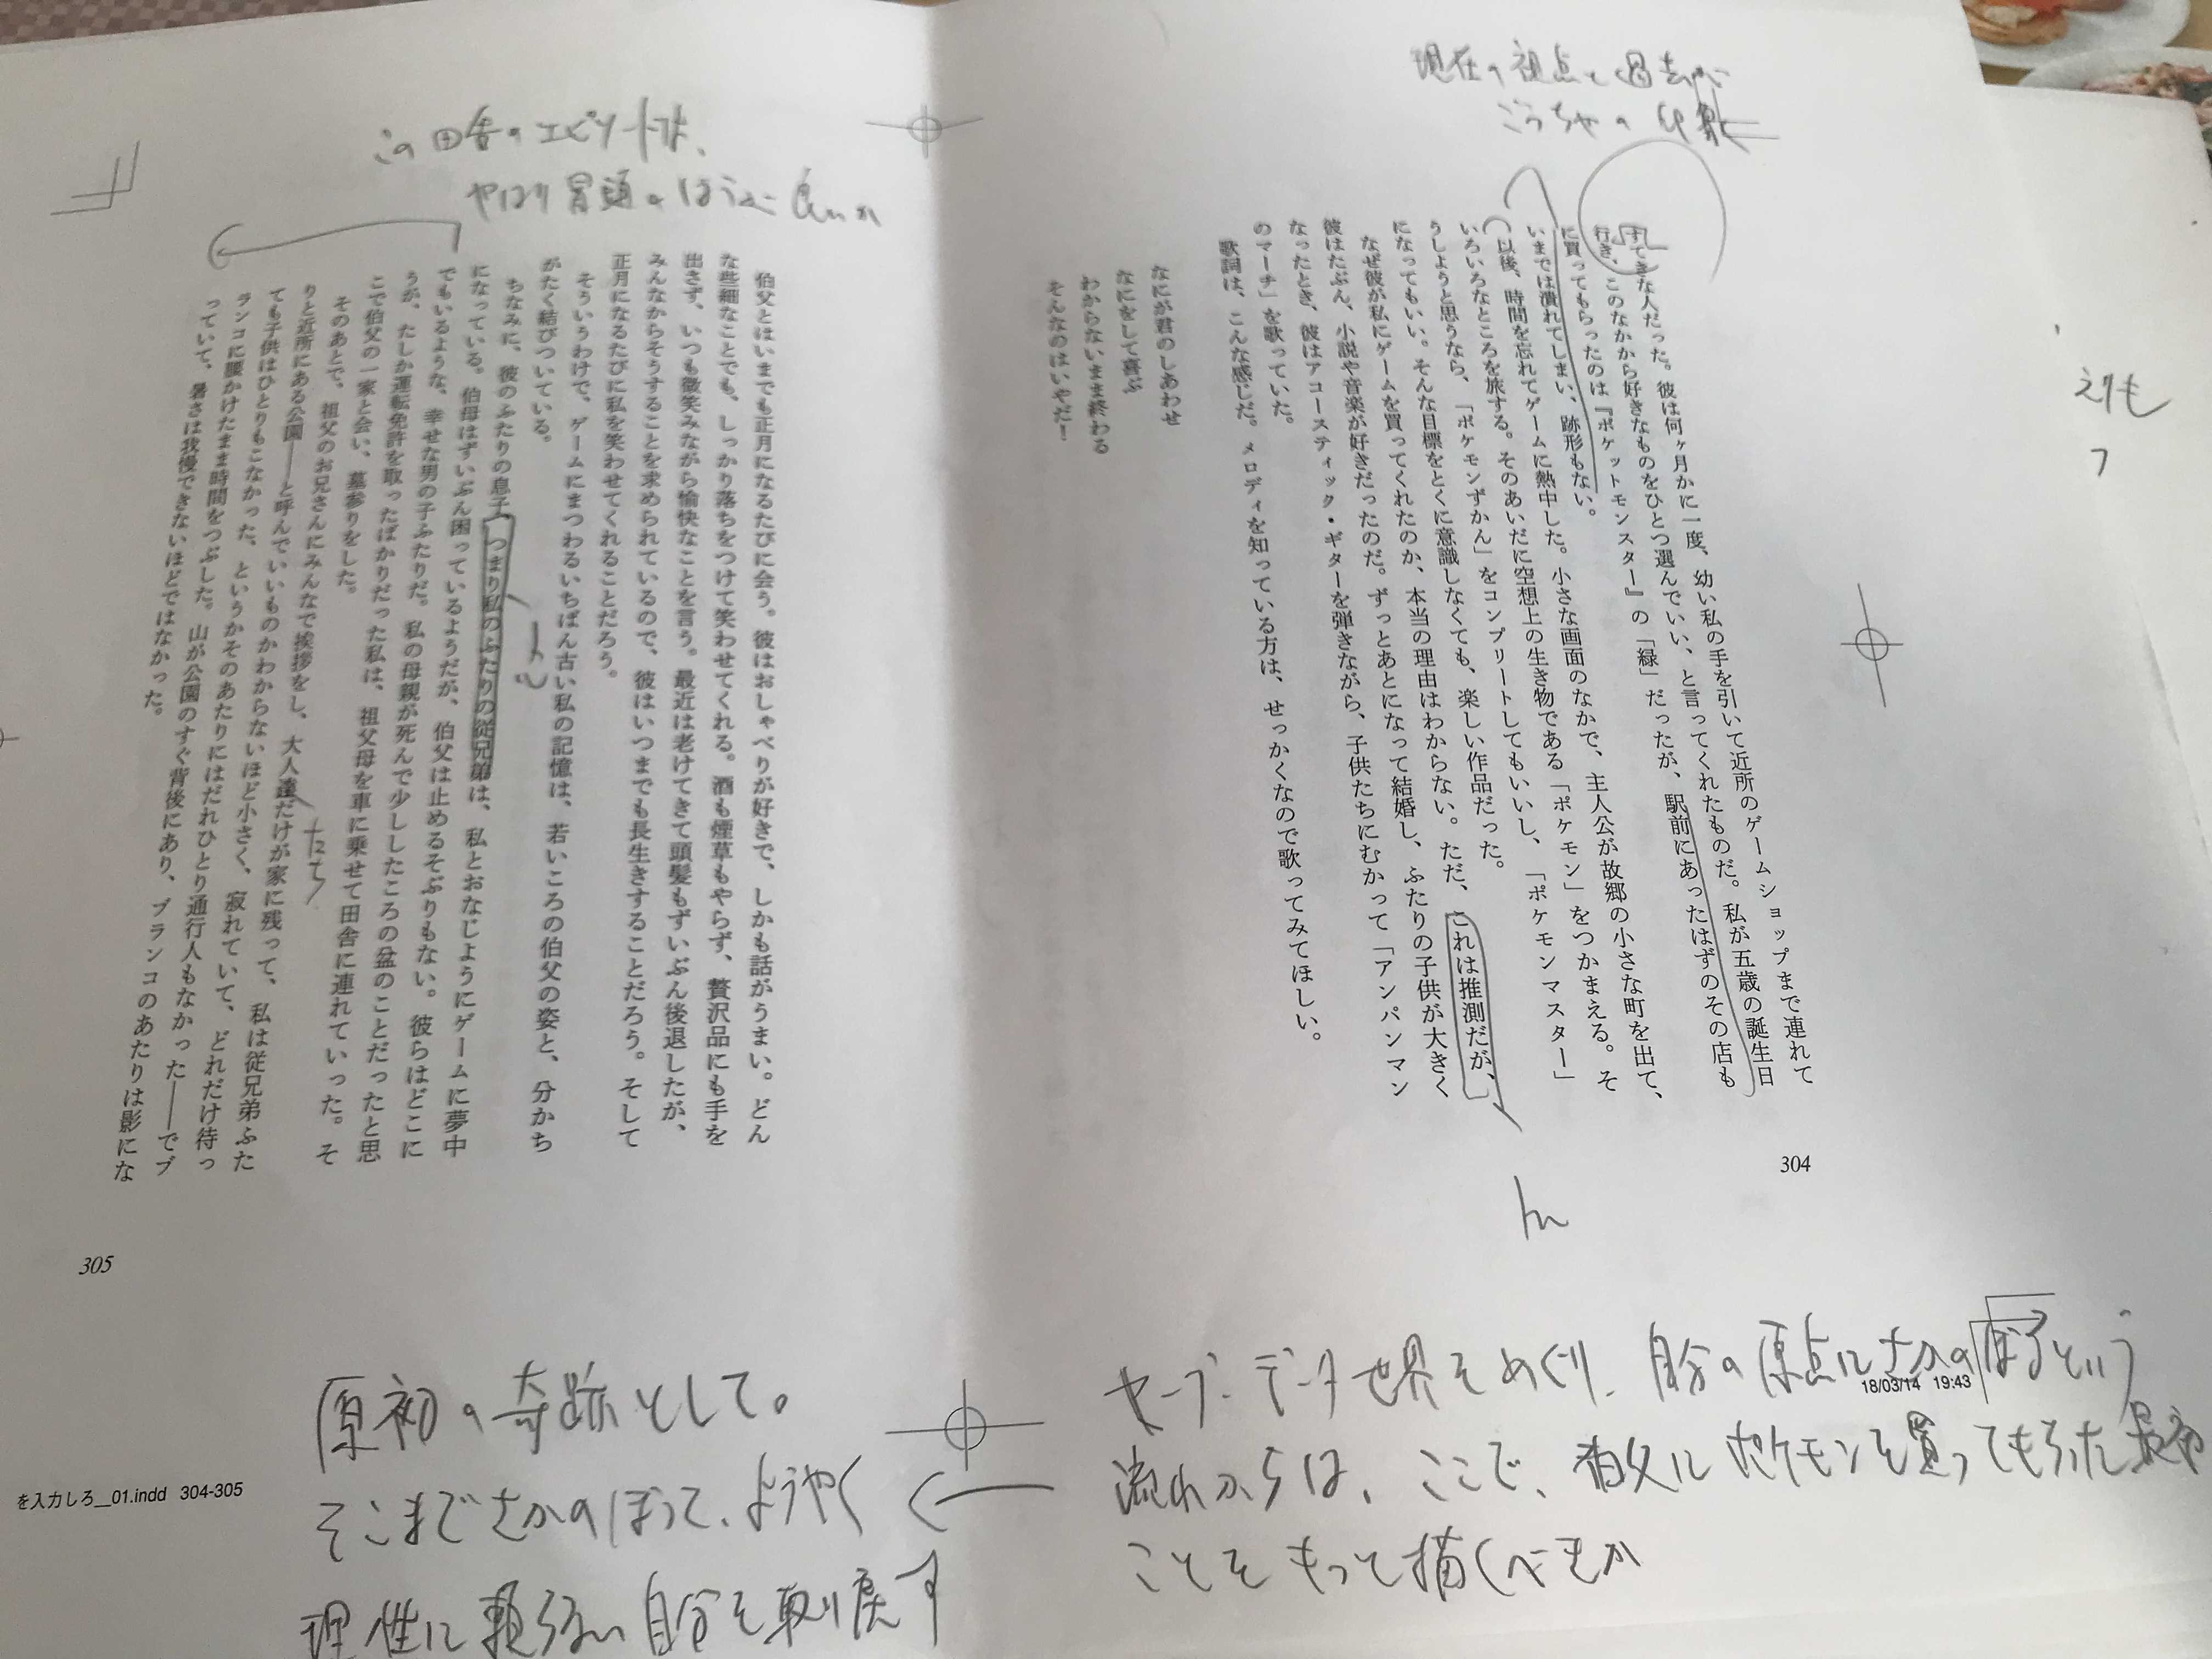 現在の視点と過去が
ごっちゃの印象
すてきな人だった。彼は何ヶ月かに一度、幼い私の手を引いて近所のゲームショップまで連れて
行き、このなかから好きなものをひとつ選んでいい、と言ってくれたものだ。私が五歳の誕生日
に買ってもらったのは『ポケットモンスター』の「緑」だったが、駅前にあったはずのその店も
いまでは潰れてしまい、跡形もない。
以後、時間を忘れてゲームに熱中した。小さな画面のなかで、主人公が故郷の小さな町を出て、
いろいろなところを旅する。そのあいだに空想上の生き物である「ポケモン」をつかまえる。そ
うしようと思うなら、「ポケモンずかん」をコンプリートしてもいいし、「ポケモンマスター」
になってもいい。そんな目標をとくに意識しなくても、楽しい作品だった。
なぜ彼が私にゲームを買ってくれたのか、本当の理由はわからない。ただ、これは推測だが、
彼はたぶん、小説や音楽が好きだったのだ。ずっとあとになって結婚し、ふたりの子供が大きく
なったとき、彼はアコースティック・ギターを弾きながら、子供たちにむかって「アンパンマン
のマーチ」を歌っていた。
歌詞は、こんな感じだ。メロディを知っている方は、せっかくなので歌ってみてほしい。
なにが君のしあわせ
なにをして喜ぶ
わからないまま終わる
そんなのはいやだ!
304
この田舎のエピソードは、
やはり冒頭のほうが良いか
伯父とはいまでも正月になるたびに会う。彼はおしゃべりが好きで、しかも話がうまい。どん
な些細なことでも、しっかり落ちをつけて笑わせてくれる。酒も煙草もやらず、贅沢品にも手を
出さず、いつも微笑みながら愉快なことを言う。最近は老けてきて頭髪もずいぶん後退したが、
みんなからそうすることを求められているので、彼はいつまでも長生きすることだろう。そして
正月になるたびに私を笑わせてくれることだろう。
そういうわけで、ゲームにまつわるいちばん古い私の記憶は、若いころの伯父の姿と、分かち
がたく結びついている。
ちなみに、彼のふたりの息子つまり私のふたりの従兄弟は、私とおなじようにゲームに夢中
になっている。伯母はずいぶん困っているようだが、伯父は止めるそぶりもない。彼らはどこに
でもいるような、幸せな男の子ふたりだ。私の母親が死んで少ししたころの盆のことだったと思
うが、たしか運転免許を取ったばかりだった私は、祖父母を車に乗せて田舎に連れていった。そ
こで伯父の一家と会い、墓参りをした。
そのあとで、祖父のお兄さんにみんなで挨拶をし、大人達だけが家に残って、私は従兄弟ふた
りと近所にある公園――と呼んでいいものかわからないほど小さく、寂れていて、どれだけ待っ
ても子供はひとりもこなかった、というかそのあたりにはだれひとり通行人もなかった――でブ
ランコに腰かけたまま時間をつぶした。山が公園のすぐ背後にあり、ブランコのあたりは影にな
っていて、暑さは我慢できないほどではなかった。
たち
305
セーブデータ世界をめぐり、自分の原点にさかのぼるという
18/03/14 19:43
流れからは、ここで、伯父にポケモンを買ってもらった
ことをもっと描くべきか
原初の奇跡として。
そこまでさかのぼって、ようやく
理性に頼らない自分を取り戻す
を入力しろ__01.indd 304-305